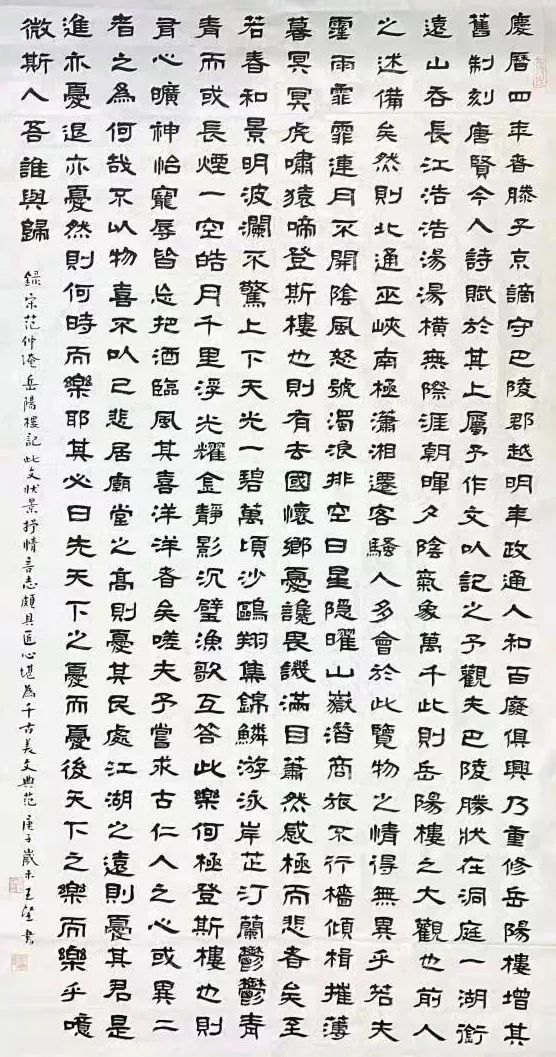 慶曆四年春滕子京謫守巴陵郡越明年政通人和百廢俱興乃重修岳陽樓增其
舊制刻唐賢今人詩賦於其上屬予作文以記之予觀夫巴陵勝狀在洞庭一湖銜
遠山吞長江浩浩湯湯橫無際涯朝暉夕陰氣象萬千此則岳陽樓之大觀也前人
之述備矣然則北通巫峽南極瀟湘遷客騷人多會於此覽物之情得無異乎若夫
霪雨霏霏連月不開陰風怒號濁浪排空日星隱曜山嶽潛商旅不行檣傾楫摧薄
暮冥冥虎嘯猿啼登斯樓也則有去國懷鄉憂讒畏譏滿目蕭然感極而悲者矣至
若春和景明波瀾不驚上下天光一碧萬頃沙鷗翔集錦鱗游泳岸芷汀蘭鬱鬱青
青而或長煙一空皓月千里浮光耀金靜影沉璧漁歌互答此樂何極登斯樓也則
有心曠神怡寵辱皆忘把酒臨風其喜洋洋者矣嗟夫予嘗求古仁人之心或異二
者之為何哉不以物喜不以己悲居廟堂之高則憂其民處江湖之遠則憂其君是
進亦憂退亦憂然則何時而樂耶其必曰先天下之憂而憂後天下之樂而樂乎噫
微斯人吾誰與歸
錄宋范仲淹岳陽樓記此文狀景抒情言志頗具匠心堪為千古美文典范 庚子歲末王書